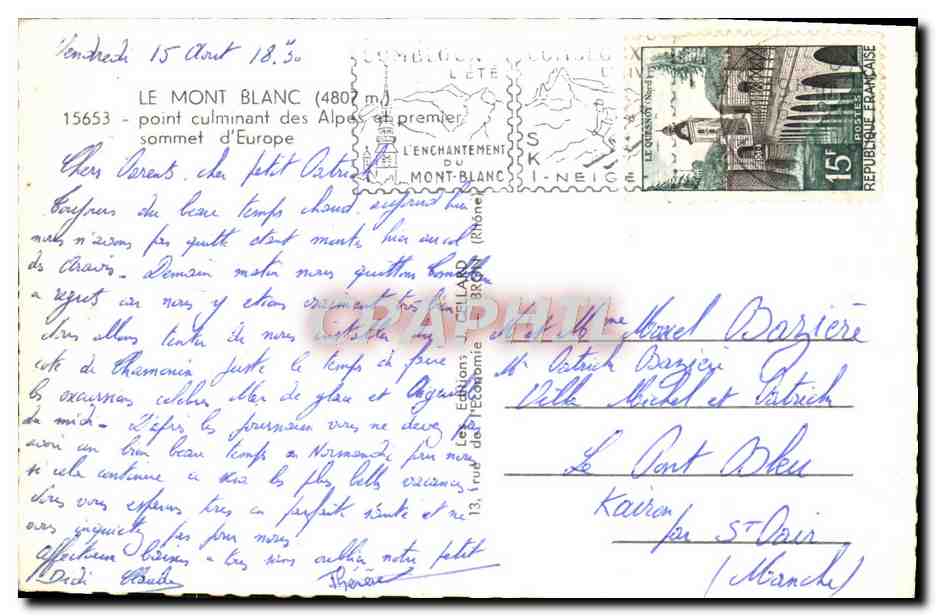 Vendredi 15 Aout 18.30
LE MONT BLANC (4807 m.)
15653 - point culminant des Alpes et premier
sommet d'Europe
COMBLOUX
L'ÉTÉ
L'ENCHANTEMENT
DU
MONT-BLANC
SKI-NEIGE
LE QUESNOY (Nord)
15F
POSTES
REPUBLIQUE FRANÇAISE
Chers Parents, cher petit Patrick
Toujours du beau temps chaud. aujourd'hui
nous n'avons pas quitté étant montés hier au col
des Aravis - Demain matin nous quittons Combloux
a regret car nous y étions vraiment très bien
Nous allons tenter de nous installer du
coté de Chamonix juste le temps de faire
les excursions celebres Mer de glace et Aiguille
du midi - D'après les journaux vous ne devez pas
avoir un bien beau temps en Normandie pour nous
si cela continue ce sera les plus belles vacances
vous esperons tres en parfaite santé et ne
vous inquietez pas pour nous
affectueux baisers a tous sans oublier notre petit
Didi Claude Thérèse
Les Editions CELLARD
13, rue de l'Economie - BRON (Rhône)
CPAPHIL
M et Mme Marcel Bazière
Mr Patrick Bazière
Villa Michel et Patrick
Le Pont Bleu
Kairon
par St Pair
(Manche)